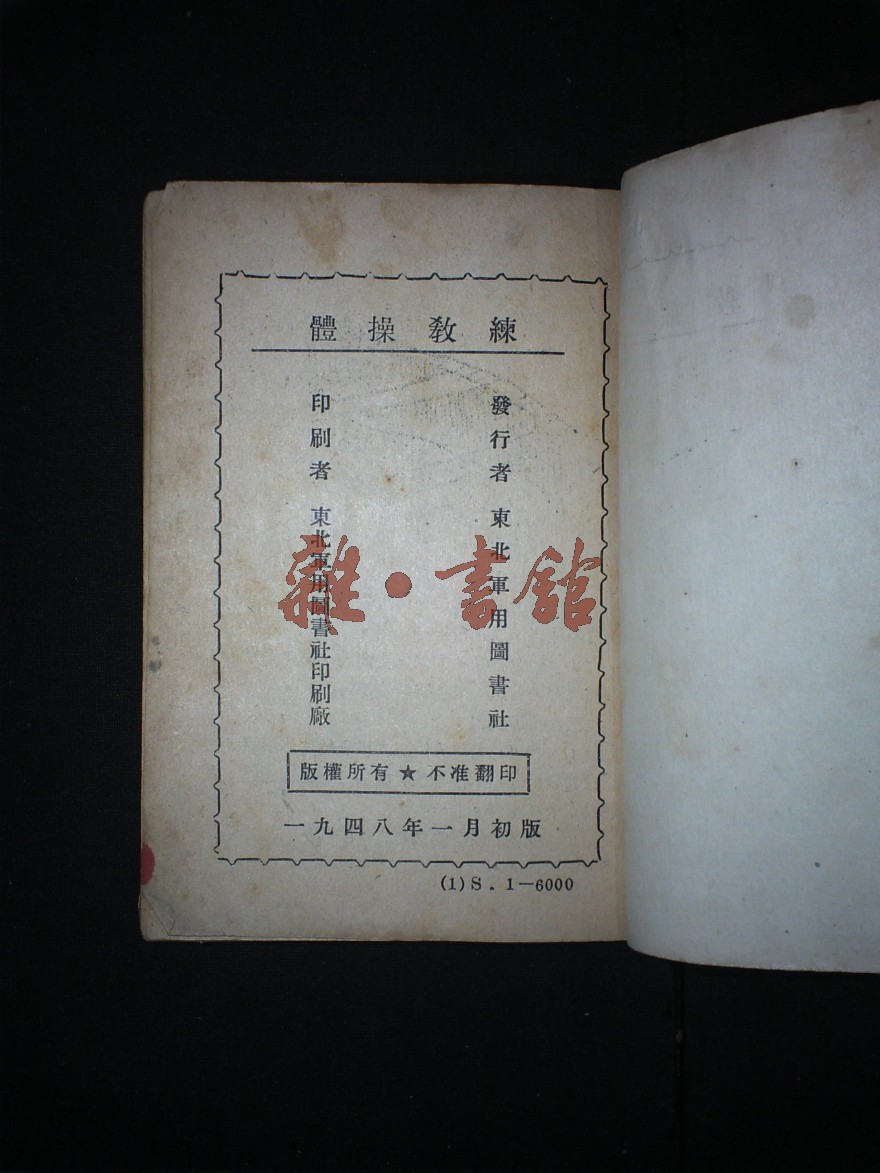 體操教練
發行者 東北軍用圖書社
印刷者 東北軍用圖書社印刷廠
版權所有★不准翻印
一九四八年一月初版
(1)S.1—6000
雜·書館